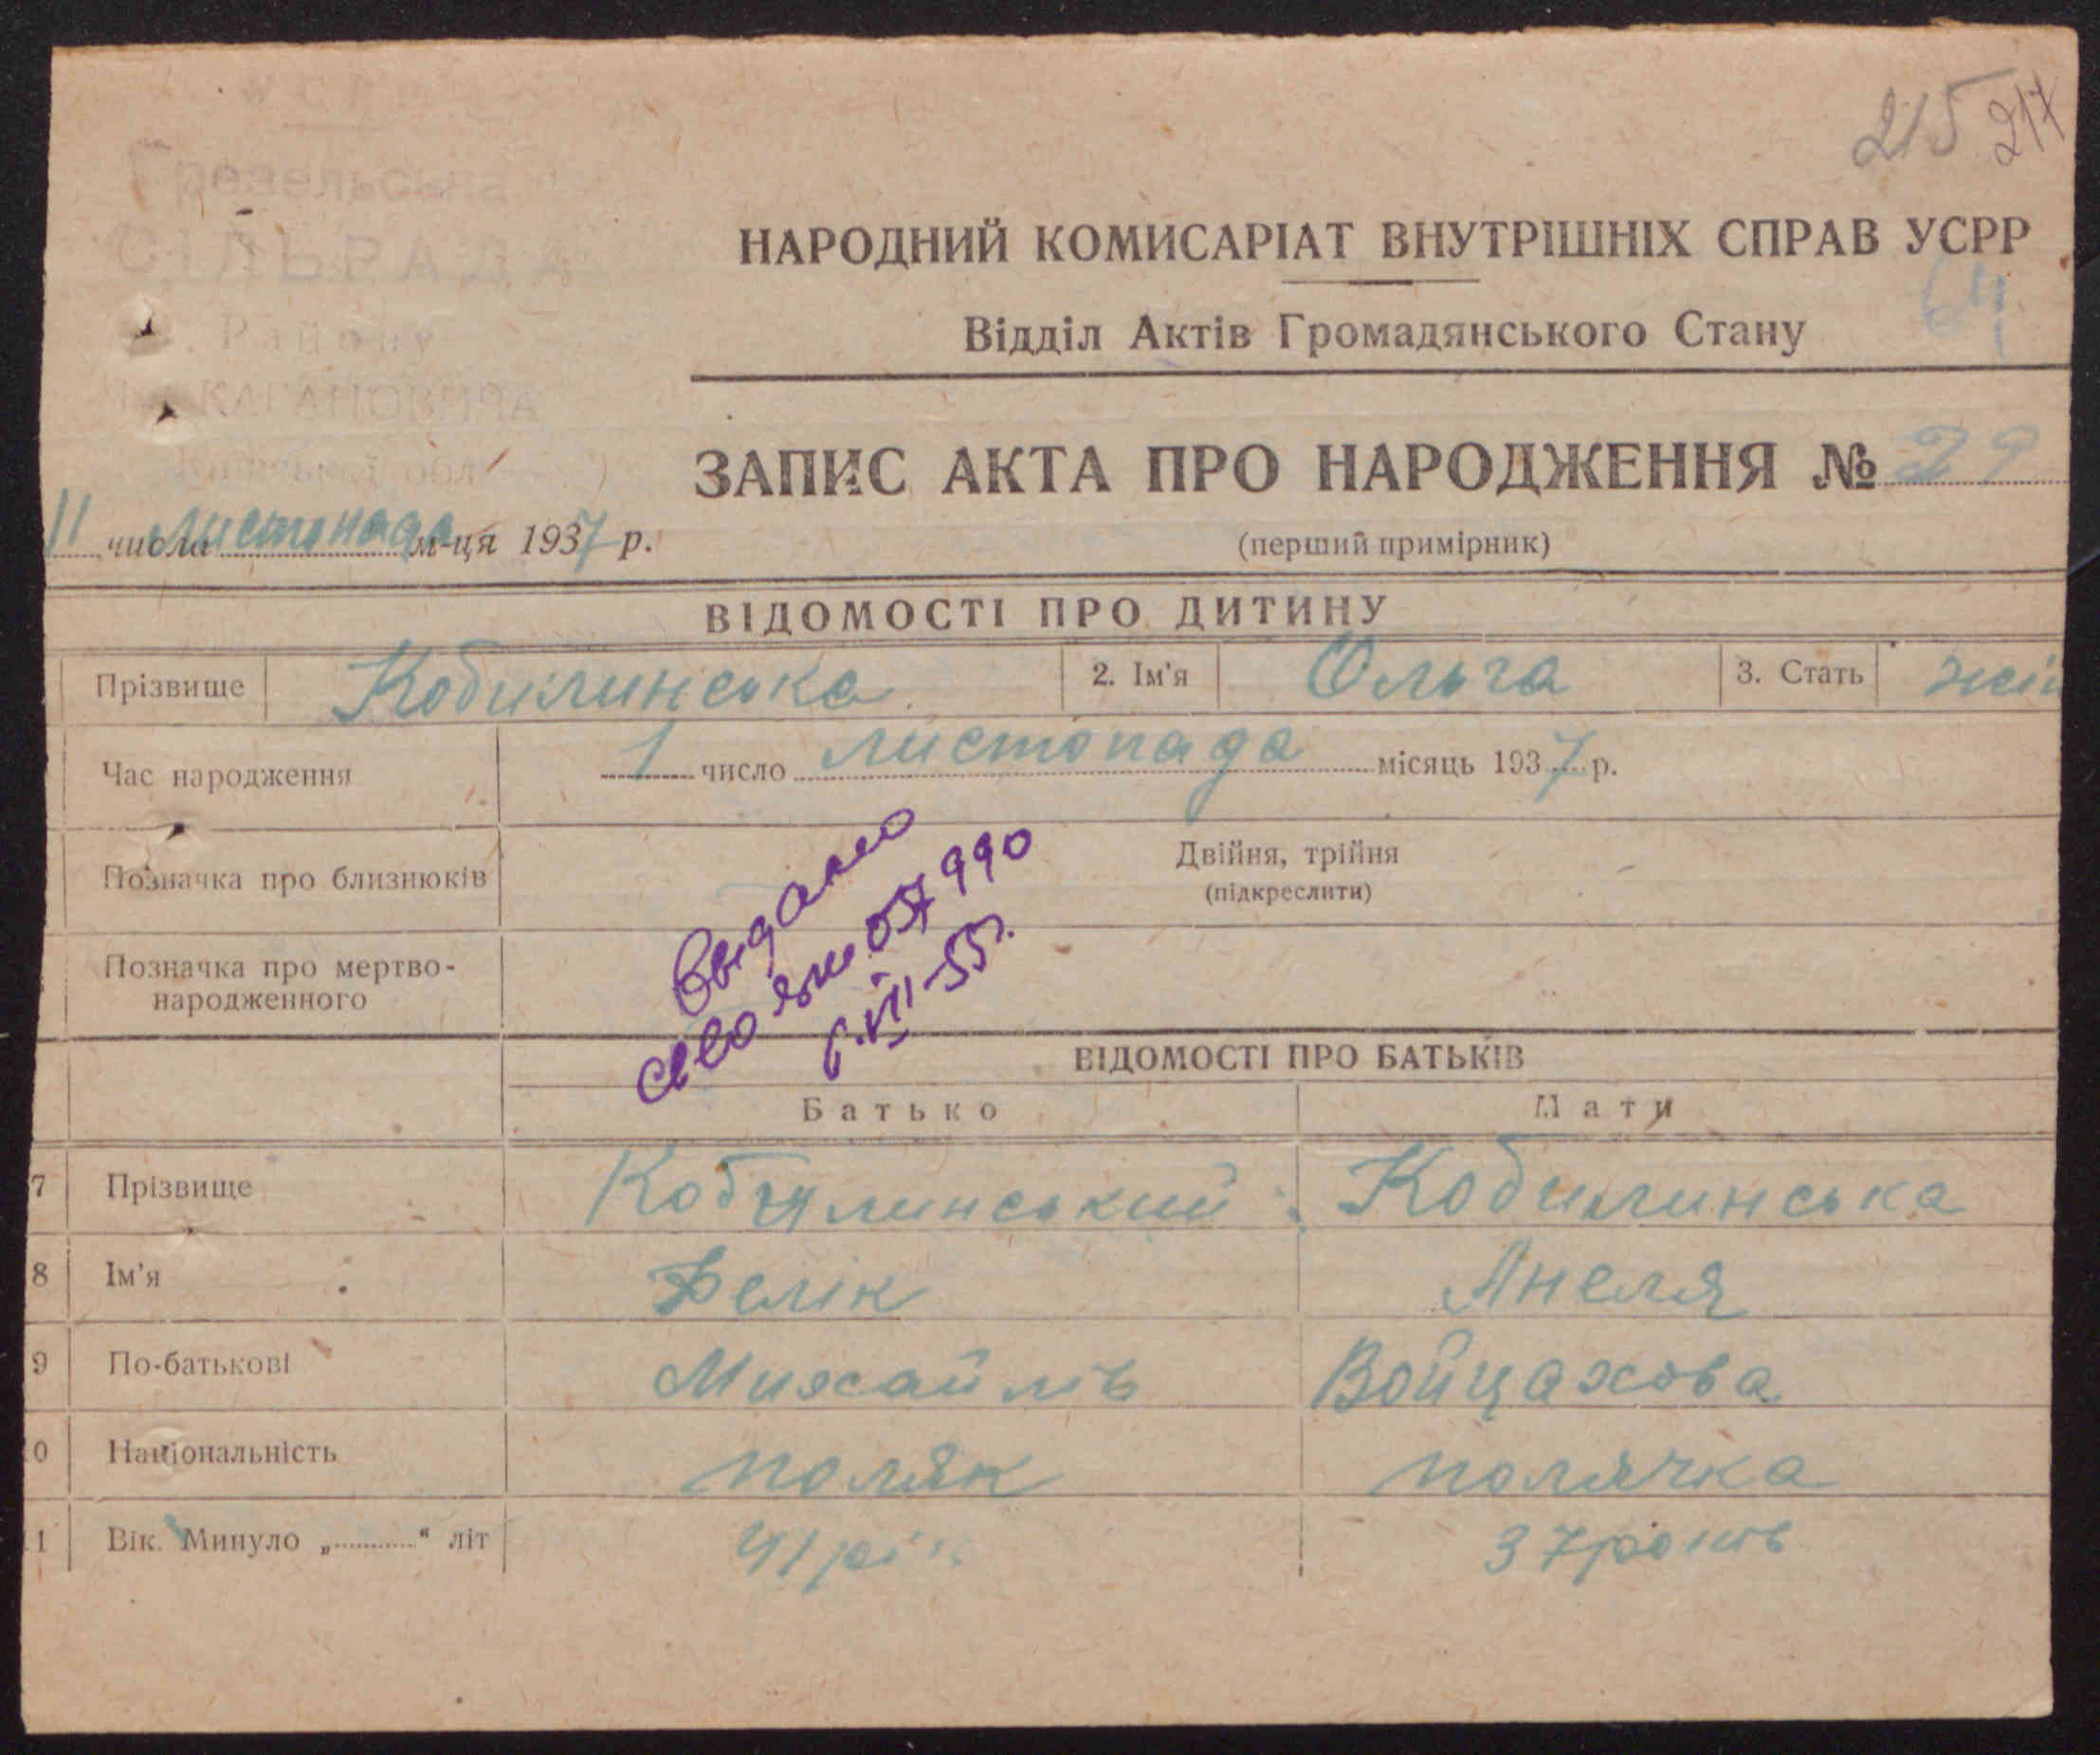 215 217
Грезельська
СІЛЬРАДА
Району
КАГАНОВИЧА
НАРОДНИЙ КОМИСАРІАТ ВНУТРІШНІХ СПРАВ УСРР
64
Відділ Актів Громадянського Стану
ЗАПИС АКТА ПРО НАРОДЖЕННЯ № 29
11 числа листопада м-ця 1937 р.
(перший примірник)
ВІДОМОСТІ ПРО ДИТИНУ
Прізвище Кобилинська 2. Ім'я Ольга 3. Стать жін
Час народження 1 число листопада місяць 1937 р.
Позначка про близнюків Двійня, трійня
(підкреслити)
Позначка про мертво-
народженного
Видано
057990
VII-55г.
ВІДОМОСТІ ПРО БАТЬКІВ
Батько Мати
7 Прізвище Кобилинський Кобилинська
8 Ім'я Фелік Анеля
9 По-батькові Михайлів Войцахова
0 Національність поляк полячка
1 Вік. Минуло „..........“ літ 41 рік 37 років